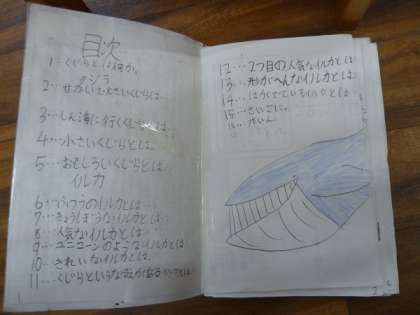 目次
1…くじらとは何か。
クジラ
2…せかい1大きいくじらは…
3…しん海に行くくじらとは…
4…小さいくじらとは…
5…おもしろいくじらとは
イルカ
6…ふつうのイルカとは
7…きょうぼうなイルカとは
8…人気なイルカとは
9…ユニコーンのようなイルカとは
10…きれいなイルカとは
11…くじらという名前がある
12…2つ目の人気なイルカとは
13…形がへんなイルカとは
14…イルカとは
15…さいごに。
16…
2